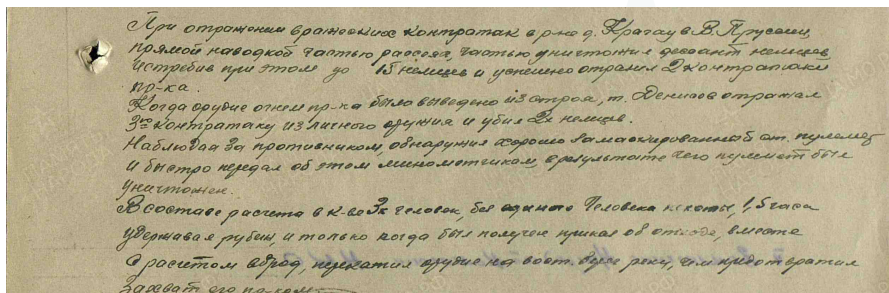 При отражении вражеских контратак в р-не д. Крагау в В. Пруссии,
прямой наводкой частью рассеял, частью уничтожил десант немцев,
истребив при этом до 15 немцев и успешно отразил 2 контратаки
пр-ка.
Когда орудие огнем пр-ка было выведено из строя, т. Денисов отражал
3ю контратаку из личного оружия и убил 2х немцев.
Наблюдая за противником, обнаружил хорошо замаскированный ст. пулемет
и быстро передал об этом минометчикам, в результате чего пулемет был
уничтожен.
В составе расчета в к-ве 3х человек, без единого человека пехоты, 1,5 часа
удерживал рубеж, и только когда был получен приказ об отходе, вместе
с расчетом вброд, перекатил орудие на вост. берег реки, чем предотвратил
захват его пр-ком.